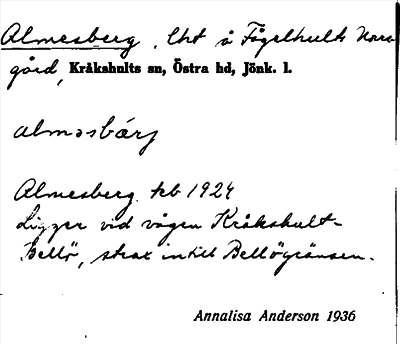 Almesberg, lht å Fågelhults Norra
gård, Kråkshults sn, Östra hd, Jönk. l.
alməsbärj
Almesberg. tcb 1924
Ligger vid vägen Kråkshult-
Bellö, strax intill Bellögränsen.
Annalisa Anderson 1936